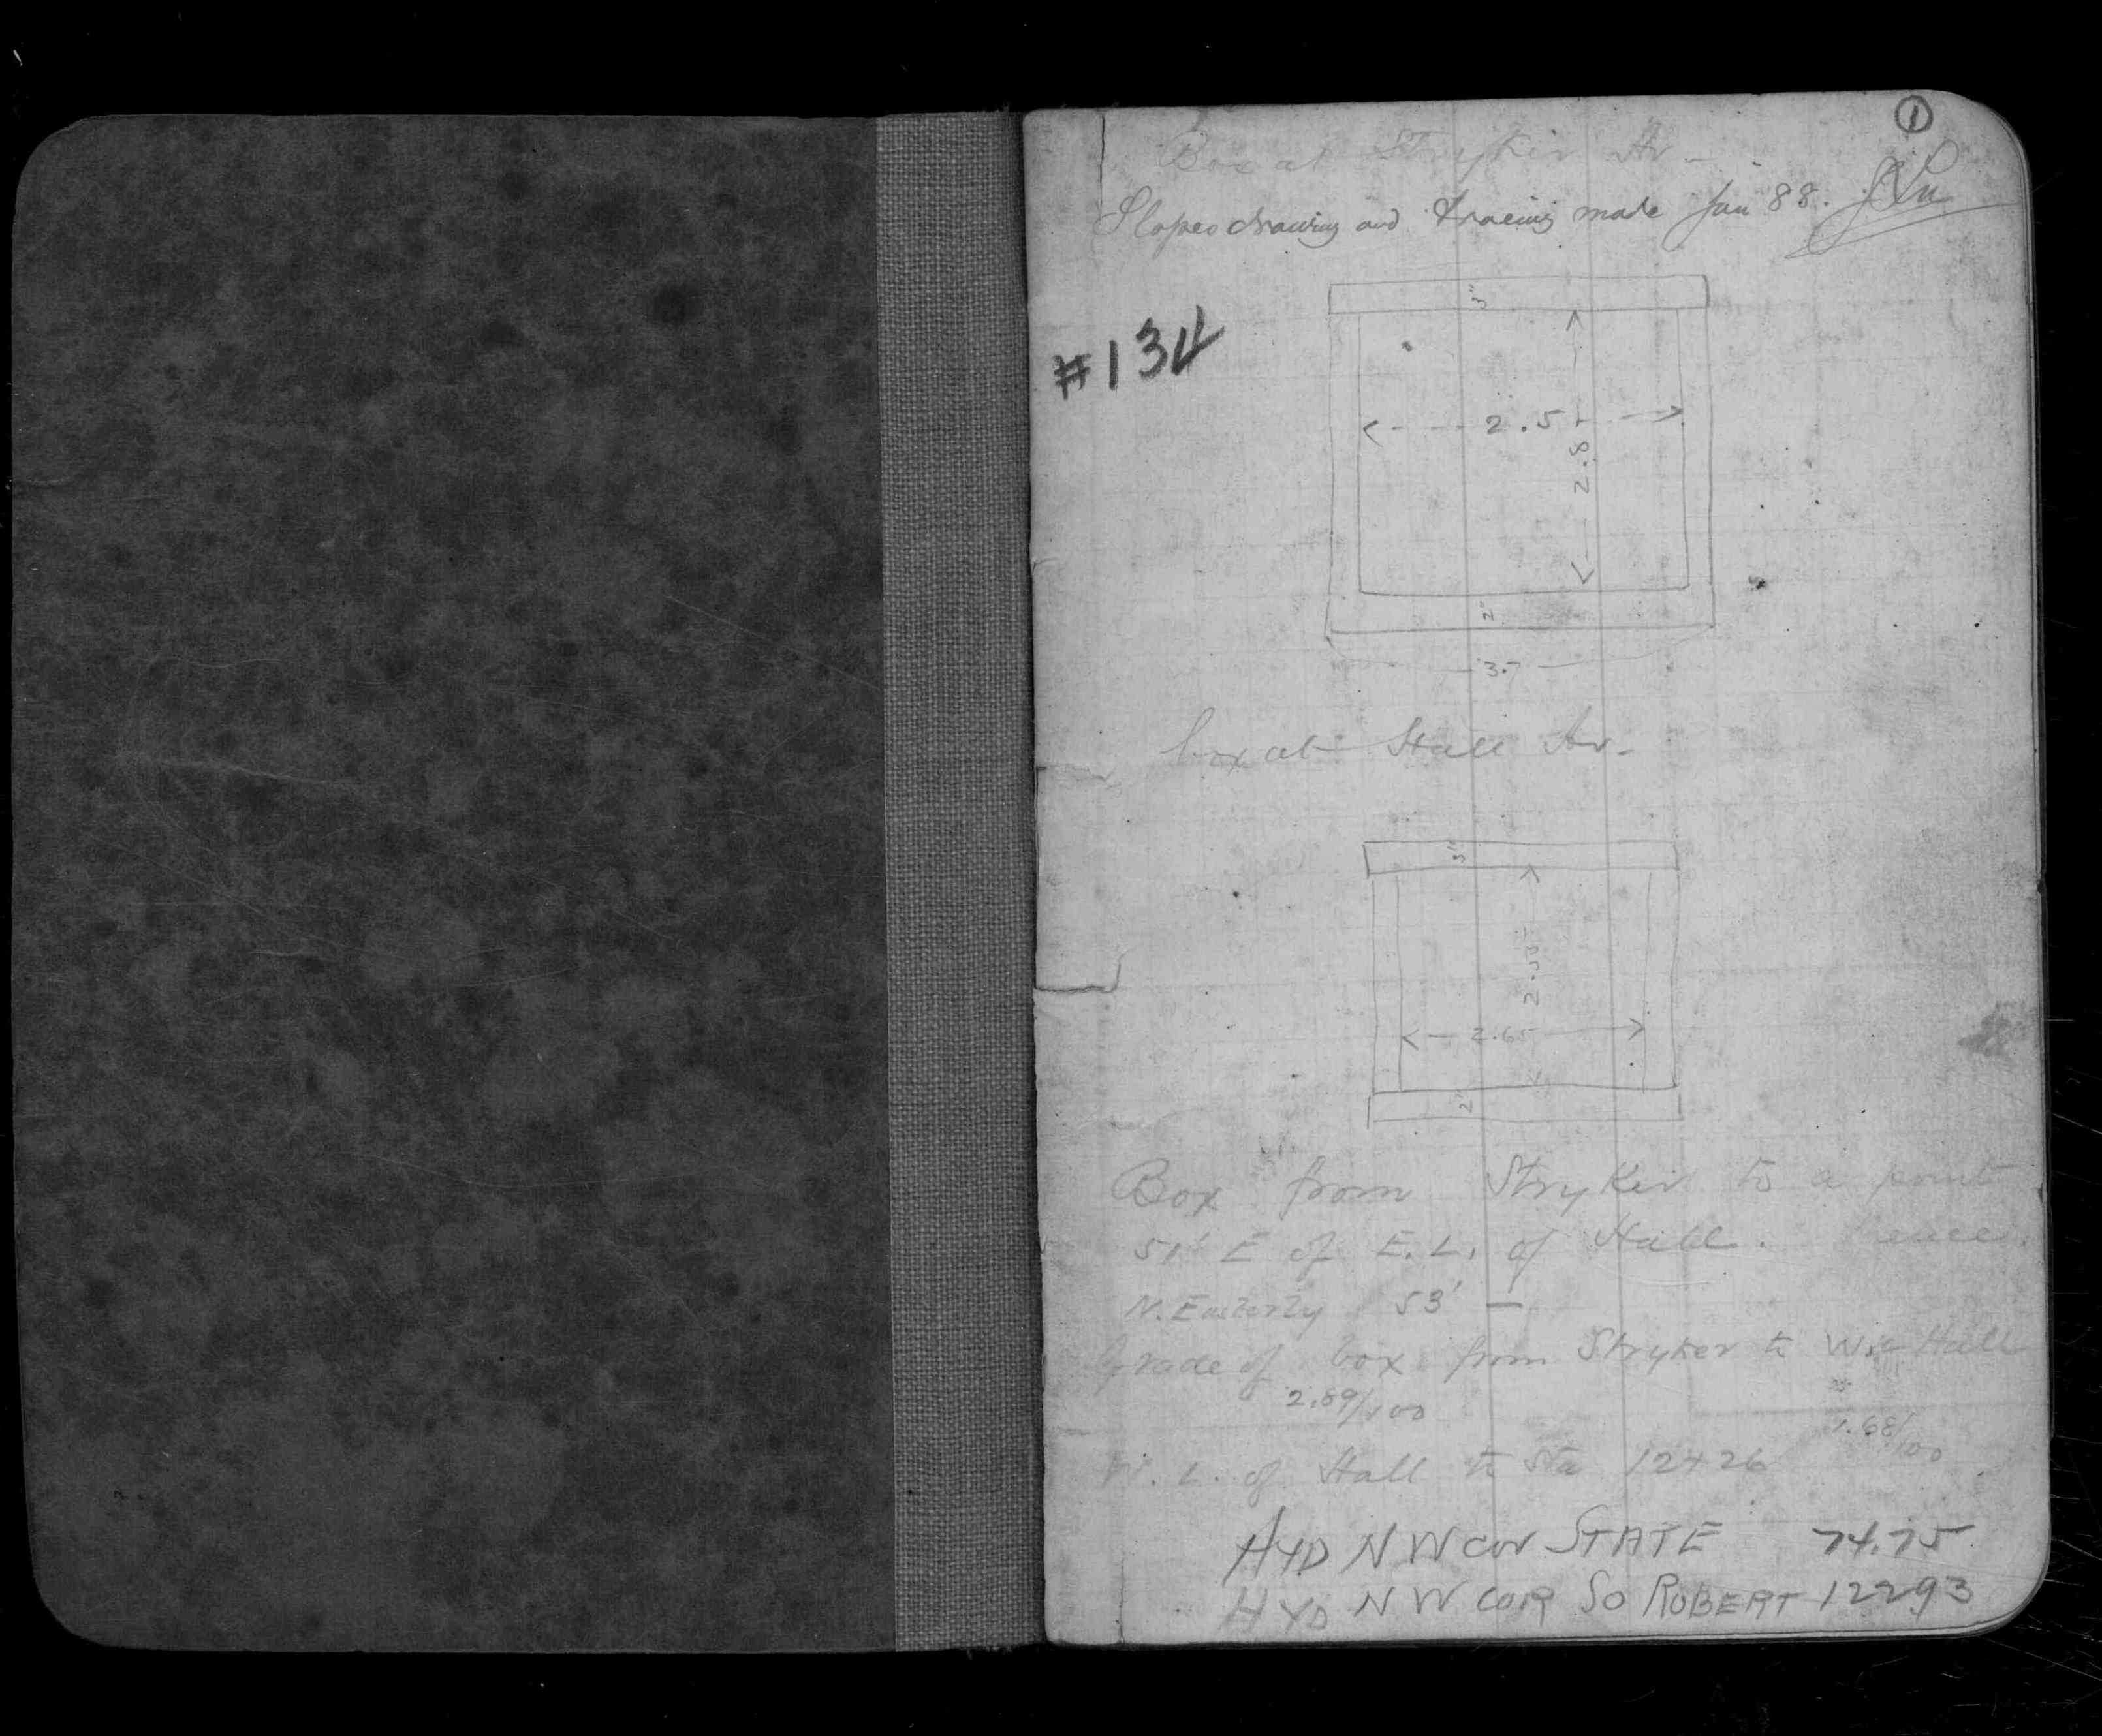 1
Box at Stryker Av -
Slopes drawing and tracing made Jan 88.
#134
3"
2.5
2.8
2"
3.7
box at Hall Av-
3"
2.65
2"
Box from Stryker to a point
51' E of E. L. of Hall. hence
N. Easterly 53' —
Grade of box from Stryker to Hall
2.89/100
1.68/100
W. L. of Hall to Sta 12+26
HYD N W cor STATE 74.75
HYD N W COR SO ROBERT 12293